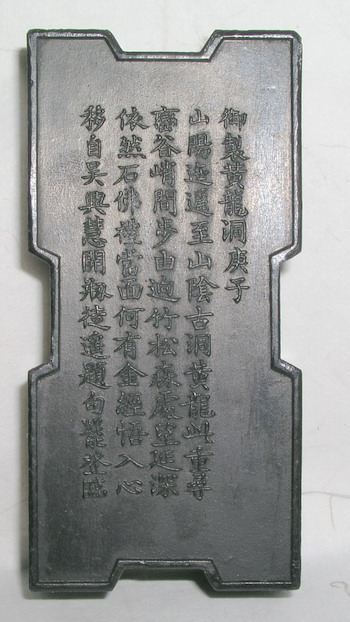 御製黃龍洞庚子
山陽迤邐至山陰古洞黃龍此重尋
壑谷峭間步由迤竹松森處望延深
依然石佛禮當面何有金經悟入心
移自吳興慧開瓶徒遺題句罷登臨